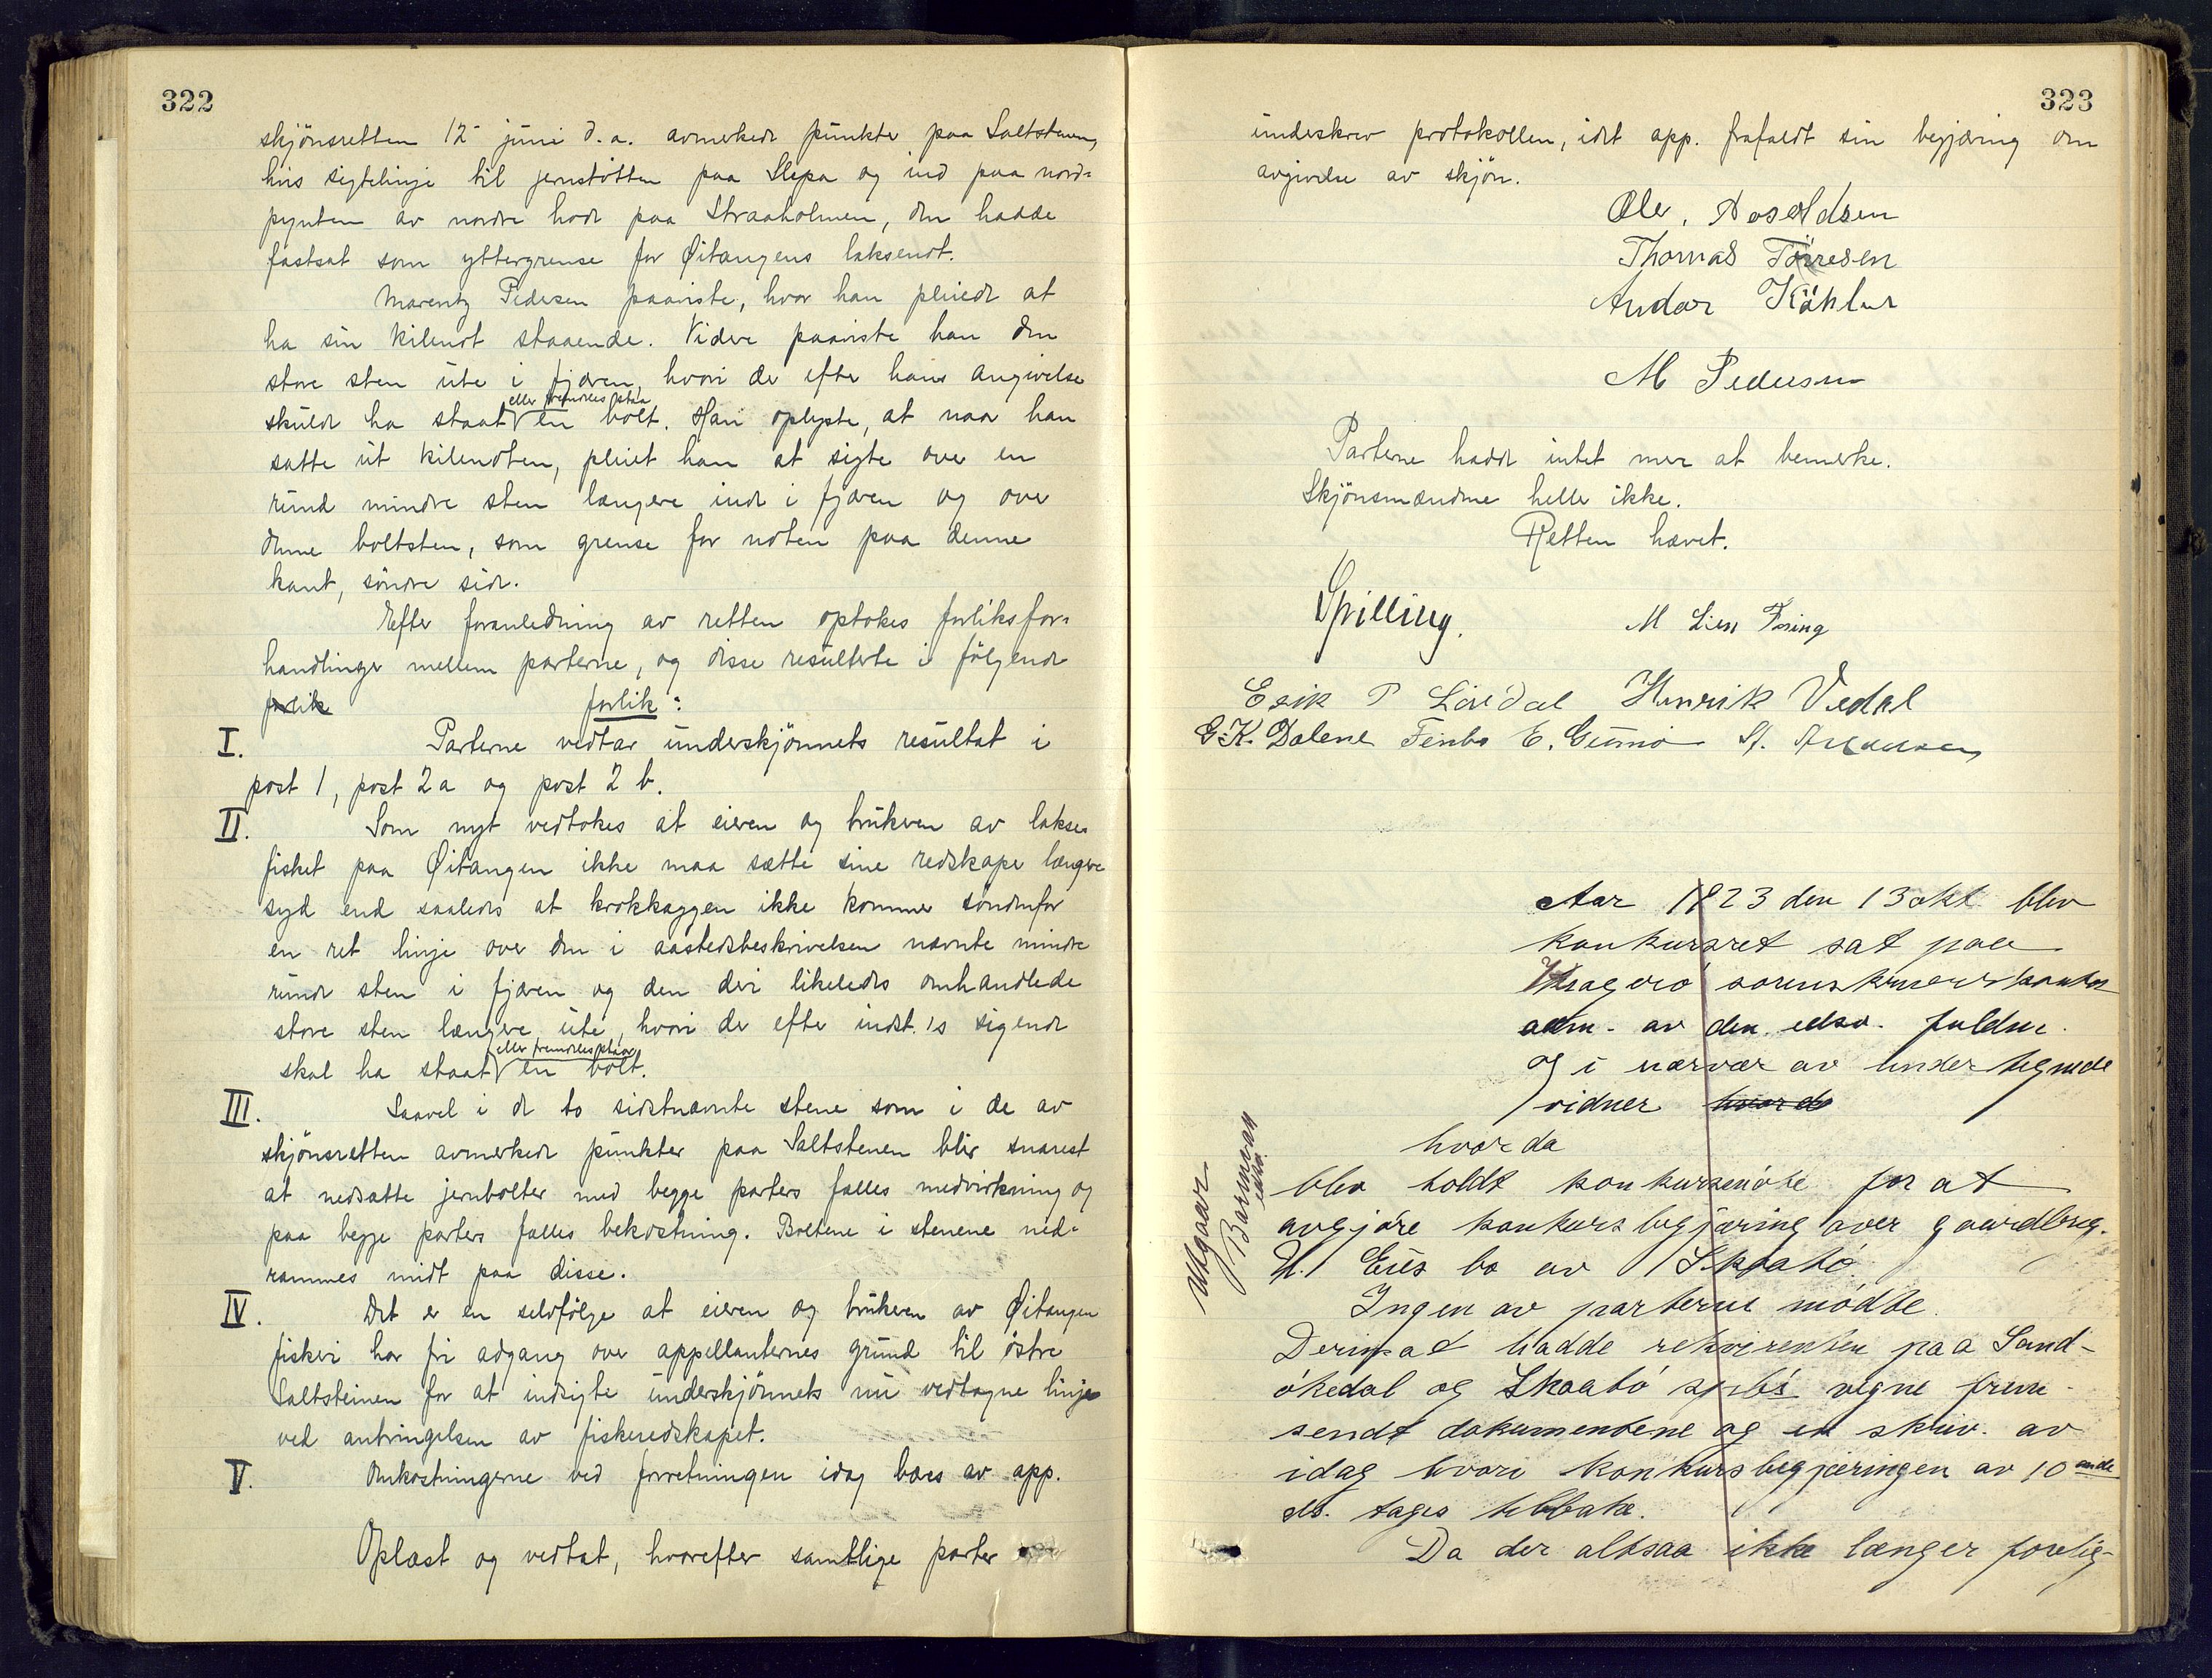 322
skjönsretten 12 juni d.a. avmerkede punkter paa Saltstenen,
hvis sigtelinje til jernstötten paa Slepa og ind paa nord-
pynten av nordre hode paa Straaholmen, den hadde
fastsat som yttergrense for Øitangens laksenot.
Marentz Pedersen paaviste, hvor han pleiede at
ha sin kilenot staaende. Videre paaviste han den
store sten ute i fjæren, hvori der efter hans angivelse
eller fremdeles staa
skulde ha staat en bolt. Han oplyste, at naar han
satte ut kilenoten, pleiet han at sigte over en
rund mindre sten længere inde i fjæren og over
denne boltsten, som grense for noten paa denne
kant, söndre side.
Efter foranledning av retten optokes forliksfor-
handlinger mellem parterne, og disse resulterte i fölgende
forlik forlik:
I. Parterne vedtar underskjönnets resultat i
post 1, post 2a og post 2 b.
II. Som nyt vedtokes at eieren og brukeren av lakse-
fisket paa Øitangen ikke maa sætte sine redskaper længere
syd end saaledes at krokkaggen ikke kommer söndenfor
en ret linje over den i aastedsbeskrivelsen nævnte mindre
runde sten i fjæren og den deri likeledes omhandlede
store sten længere ute, hvori der efter indst.'s sigende
eller fremdeles staar
skal ha staat en bolt.
III. Saavel i de to sidstnævnte stene som i de av
skjönsretten avmerkede punkter paa Saltstenen blir snarest
at nedsætte jernbolter med begge parters fælles medvirkning og
paa begge parters fælles bekostning. Boltene i stenene ned-
rammes midt paa disse.
IV. Det er en selvfölge at eieren og brukeren av Øitangen
fiskeri har fri adgang over appellanternes grund til östre
Saltsteinen for at indsigte underskjönnets nu vedtagne linje
ved anbringelsen av fiskeredskapet.
V. Omkostningerne ved forretningen idag bæres av app.
Oplæst og vedtat, hvorefter samtlige parter
323
underskrev protokollen, idet app. frafaldt sin begjæring om
avgivelse av skjön.
Ole. Roseldsen
Thomas Törresen
Andor Köhler
M Pedersen
Parterne hadde intet mer at bemerke.
Skjönsmændene heller ikke.
Retten hævet.
Spilling. M Lien
Erik P Lövdal Henrik Vedal
G.K. Dalene E. Gumö
Aar 1923 den 13 okt blev
konkursret sat paa
Kragerö sorenskriverkontor
adm. av den edsv. fuldm.
og i nærvær av undertegnede
vidner hvorde
hvor da
blev holdt konkursmöte for at
avgjöre konkursbegjæring over gaardbrug.
H. Eies bo av Skaatö.
Ingen av parterne mödte.
Derimot hadde rekvirenten paa Sand-
ökedal og Skaatö spb's vegne frem-
sendt dokumentene og et skriv. av
idag hvori konkursbegjæringen av 10ende
ds. tages tilbake.
Da der altsaa ikke længer forelig-
Utgaar
Barman
edsv.